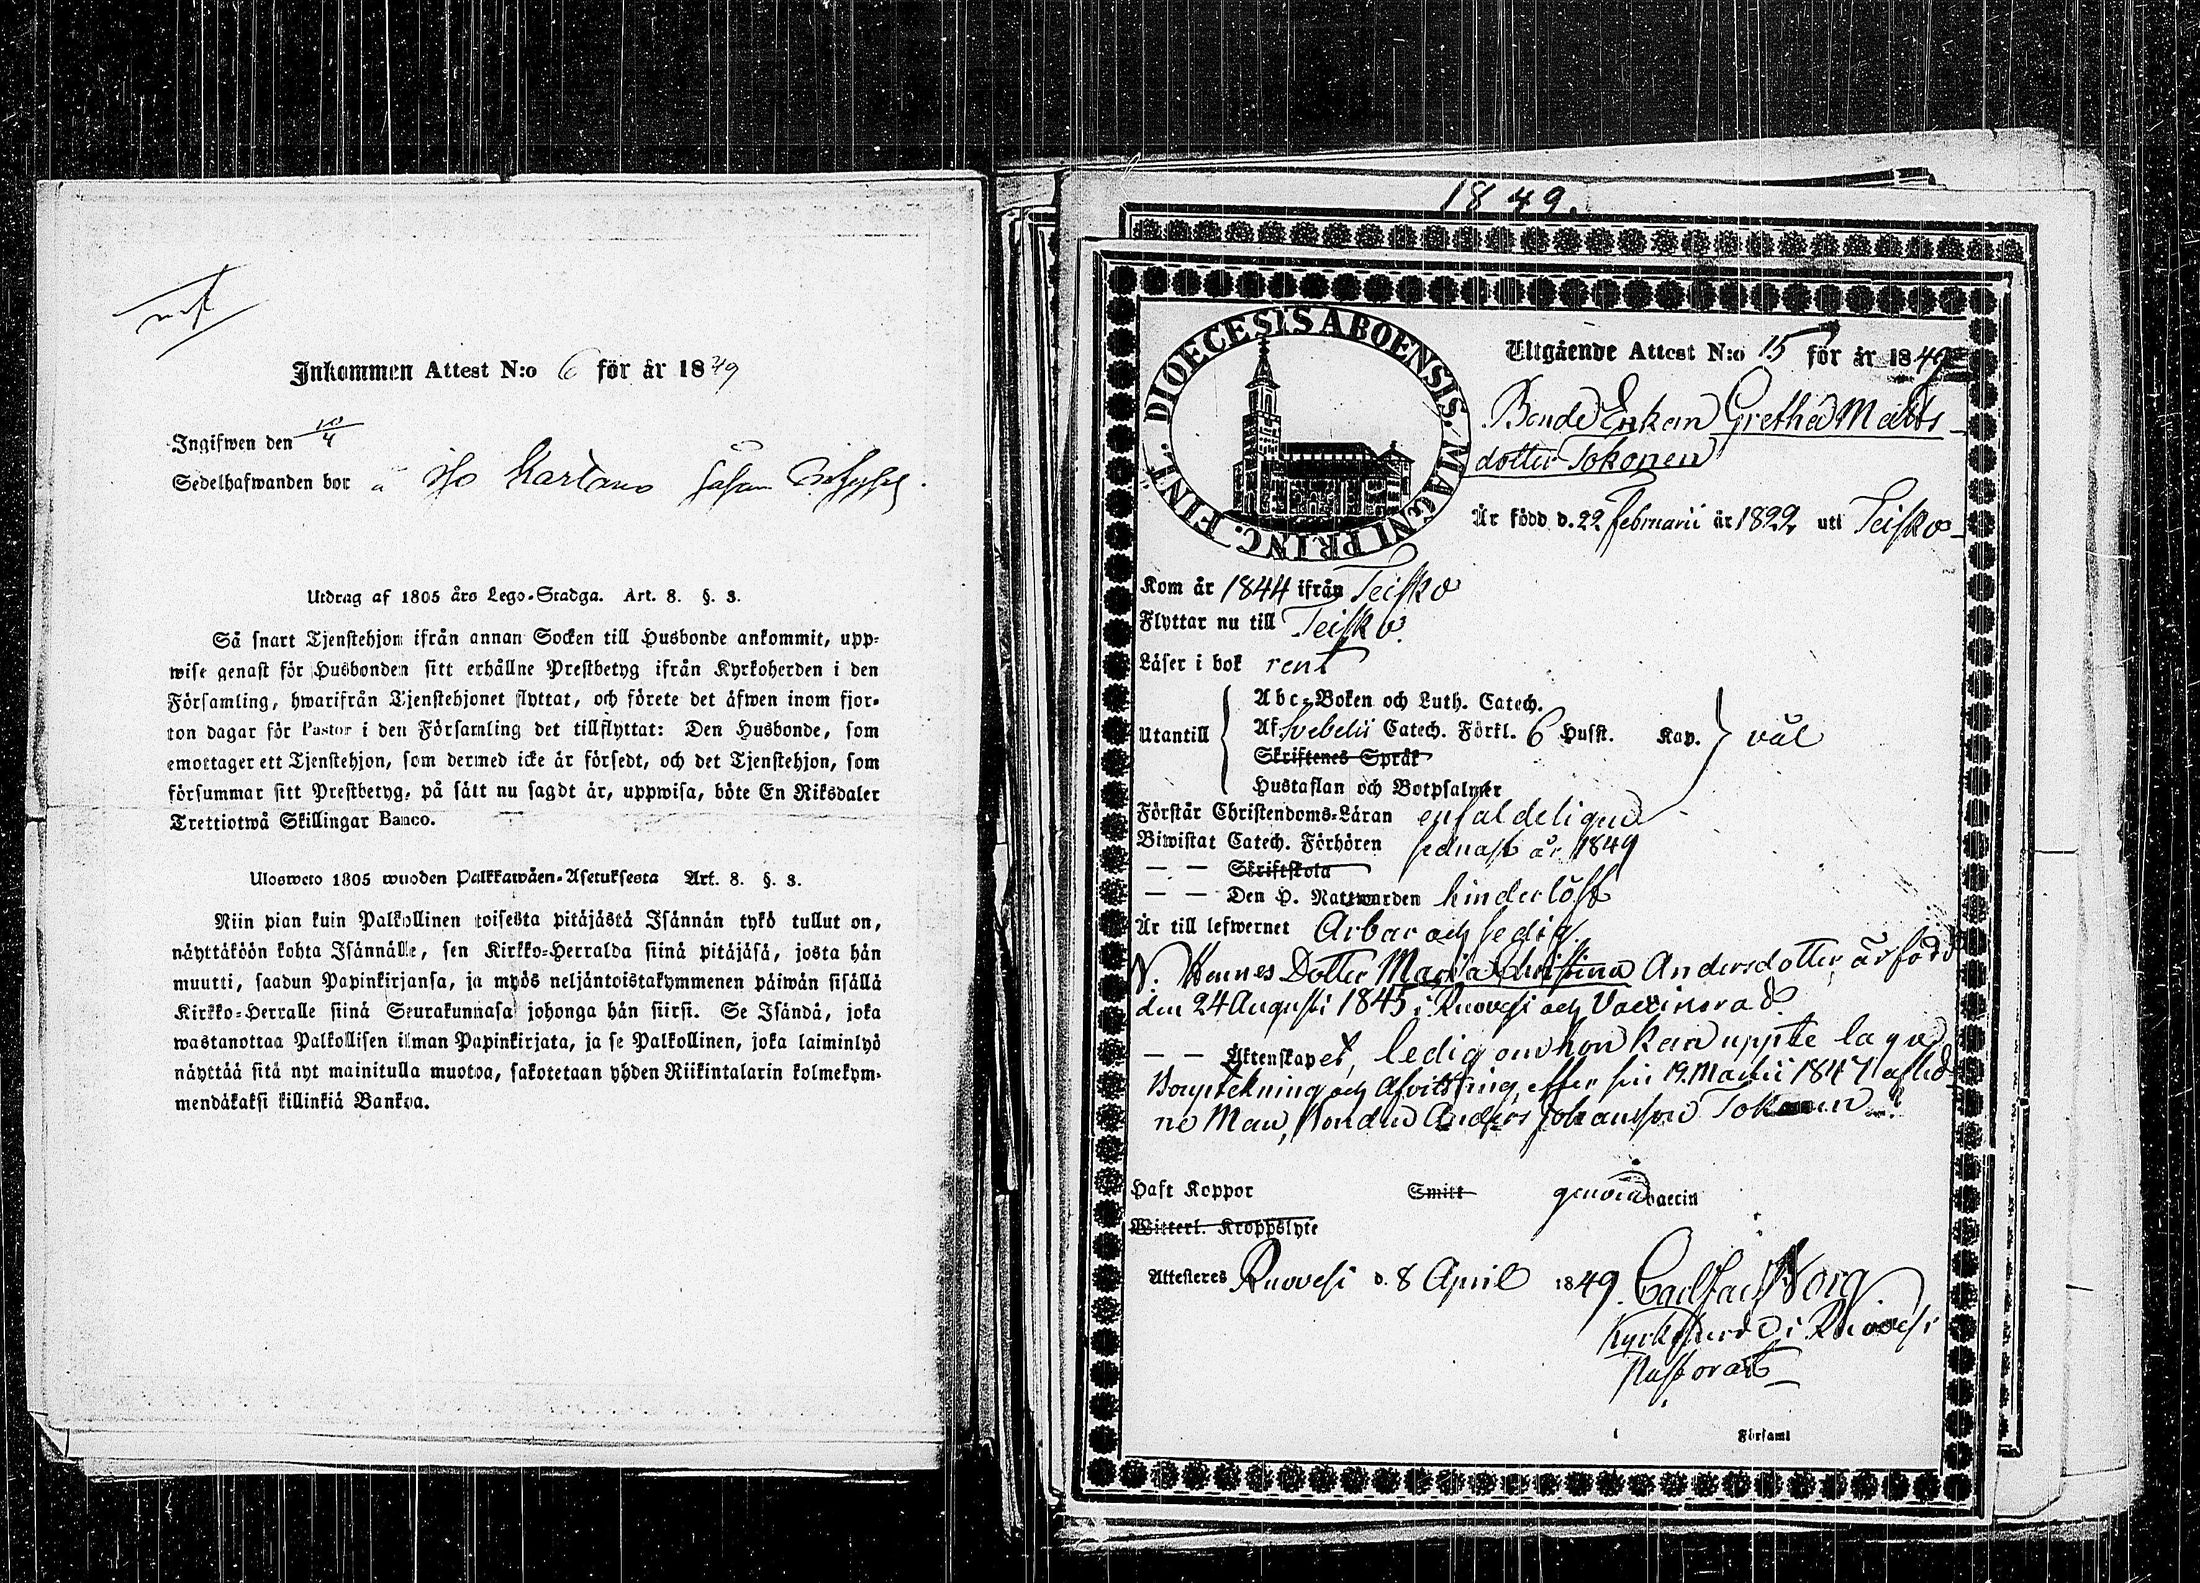 Inkommen Attest N:o 6 för år 1849
Ingifwen den 10/4
Sedelhafwanden bor å Kartano
Utdrag af 1805 års Lego-Stadga. Art. 8. §. 3.
Så snart Tjenstehjon ifrån annan Socken till Husbonde ankommit, upp-
wise genast för Husbonden sitt erhållne Prestbetyg ifrån Kyrkoherden i den
Församling, hwarifrån Tjenstehjonet flyttat, och förete det äfwen inom fjor-
ton dagar för Pastor i den Församling det tillflyttat: Den Husbonde, som
emottager ett Tjenstehjon, som dermed icke är försedt, och det Tjenstehjon, som
försummar sitt Prestbetyg, på sätt nu sagdt är, uppwisa, böte En Riksdaler
Trettiotwå Skillingar Banco.
Ulosweto 1805 wuoden Palkkawäen-Asetuksesta Art. 8. §. 3.
Niin pian kuin Palkollinen toisesta pitäjästä Isännän tykö tullut on,
näyttäköön kohta Isännälle, sen Kirkko-Herralda siinä pitäjäsä, josta hän
muutti, saadun Papinkirjansa, ja myös neljäntoistakymmenen päiwän sisällä
Kirkko-Herralle siinä Seurakunnasa johonga hän siirsi. Se Isändä, joka
wastanottaa Palkollisen ilman Papinkirjata, ja se Palkollinen, joka laiminlyö
näyttää sitä nyt mainitulla muotoa, sakotetaan yhden Riikintalarin kolmekym-
mendäkaksi killinkiä Bankoa.
1849.
DIOECESIS ABOENSIS. MAGNI PRINC. FINL.
Utgående Attest N:o 15 för år 1849
Bonde Enkan Gretha Matts-
dotter Tokonen
Är född d. 22 Februarii år 1822 uti Teisko
Kom år 1844 ifrån Teisko
Flyttar nu till Teisko
Läser i bok rent
Utantill
Abc-Boken och Luth. Catech.
Af Svebelii Catech. Förkl. 6 Husst. Kap.
Skriftenes Språk
Hustaflan och Botpsalmer
väl
Förstår Christendoms-Läran enfaldeligen
Biwistat Catech. Förhören sednast år 1849
— — Skriftskola
— — Den H. Nattwarden hinderlöst
Är till lefwernet Ärbar och sedig
N. Hennes Dotter Maria Christina Andersdotter, är född
den 24 Augusti 1845 i Ruovesi och Vaccinerad
— — Äktenskapet, ledig om hon kan uppte laga
Bouptekning och Afvittring, efter sin 19. Martii 1847 aflid-
ne Man, Bonden Anders Johansson Tokonen
Haft Koppor Smitt genom vaccin
Witterl. Kroppslyte
Attesteres Ruovesi d. 8 April 1849. Carl Jac. Borg
Kyrkoherde i Ruovesi
Pastorat
i Församl